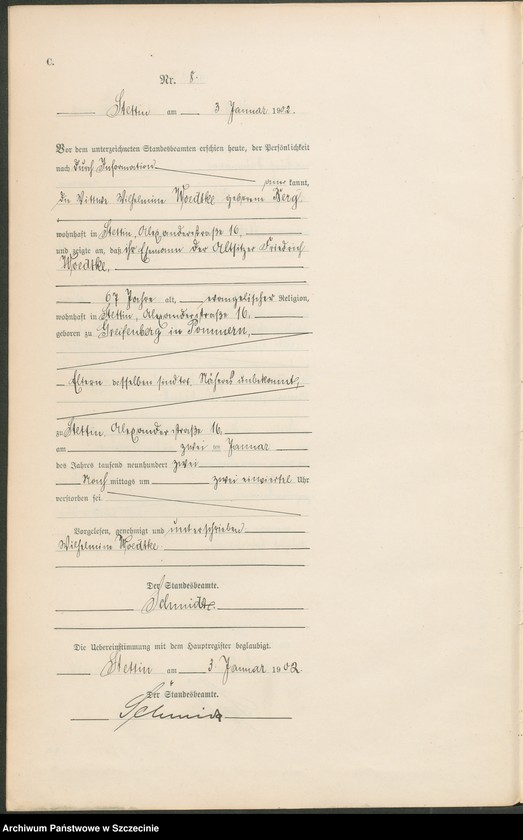 C.
Nr. 8.
Stettin am 3 Januar 1902.
Vor dem unterzeichneten Standesbeamten erschien heute, der Persönlichkeit
nach durch Information
aner kannt,
die Wittwe Wilhelmine Woedtke geborene Berg
wohnhaft in Stettin, Alexanderstraße 16,
und zeigte an, daß ihr Ehemann der Altsitzer Friedrich
Woedtke,
67 Jahre alt, evangelischer Religion,
wohnhaft in Stettin, Alexanderstraße 16,
geboren zu Greifenberg in Pommern,
Eltern desselben sind tot, Näheres unbekannt,
zu Stettin, Alexanderstraße 16,
am zwei ten Januar
des Jahres tausend neunhundert zwei
Nach mittags um zwei einviertel Uhr
verstorben sei.
Vorgelesen, genehmigt und unterschrieben
Wilhelmine Woedtke.
Der Standesbeamte.
Die Uebereinstimmung mit dem Hauptregister beglaubigt.
Stettin am 3. Januar 1902.
Der Standesbeamte.
Archiwum Państwowe w Szczecinie